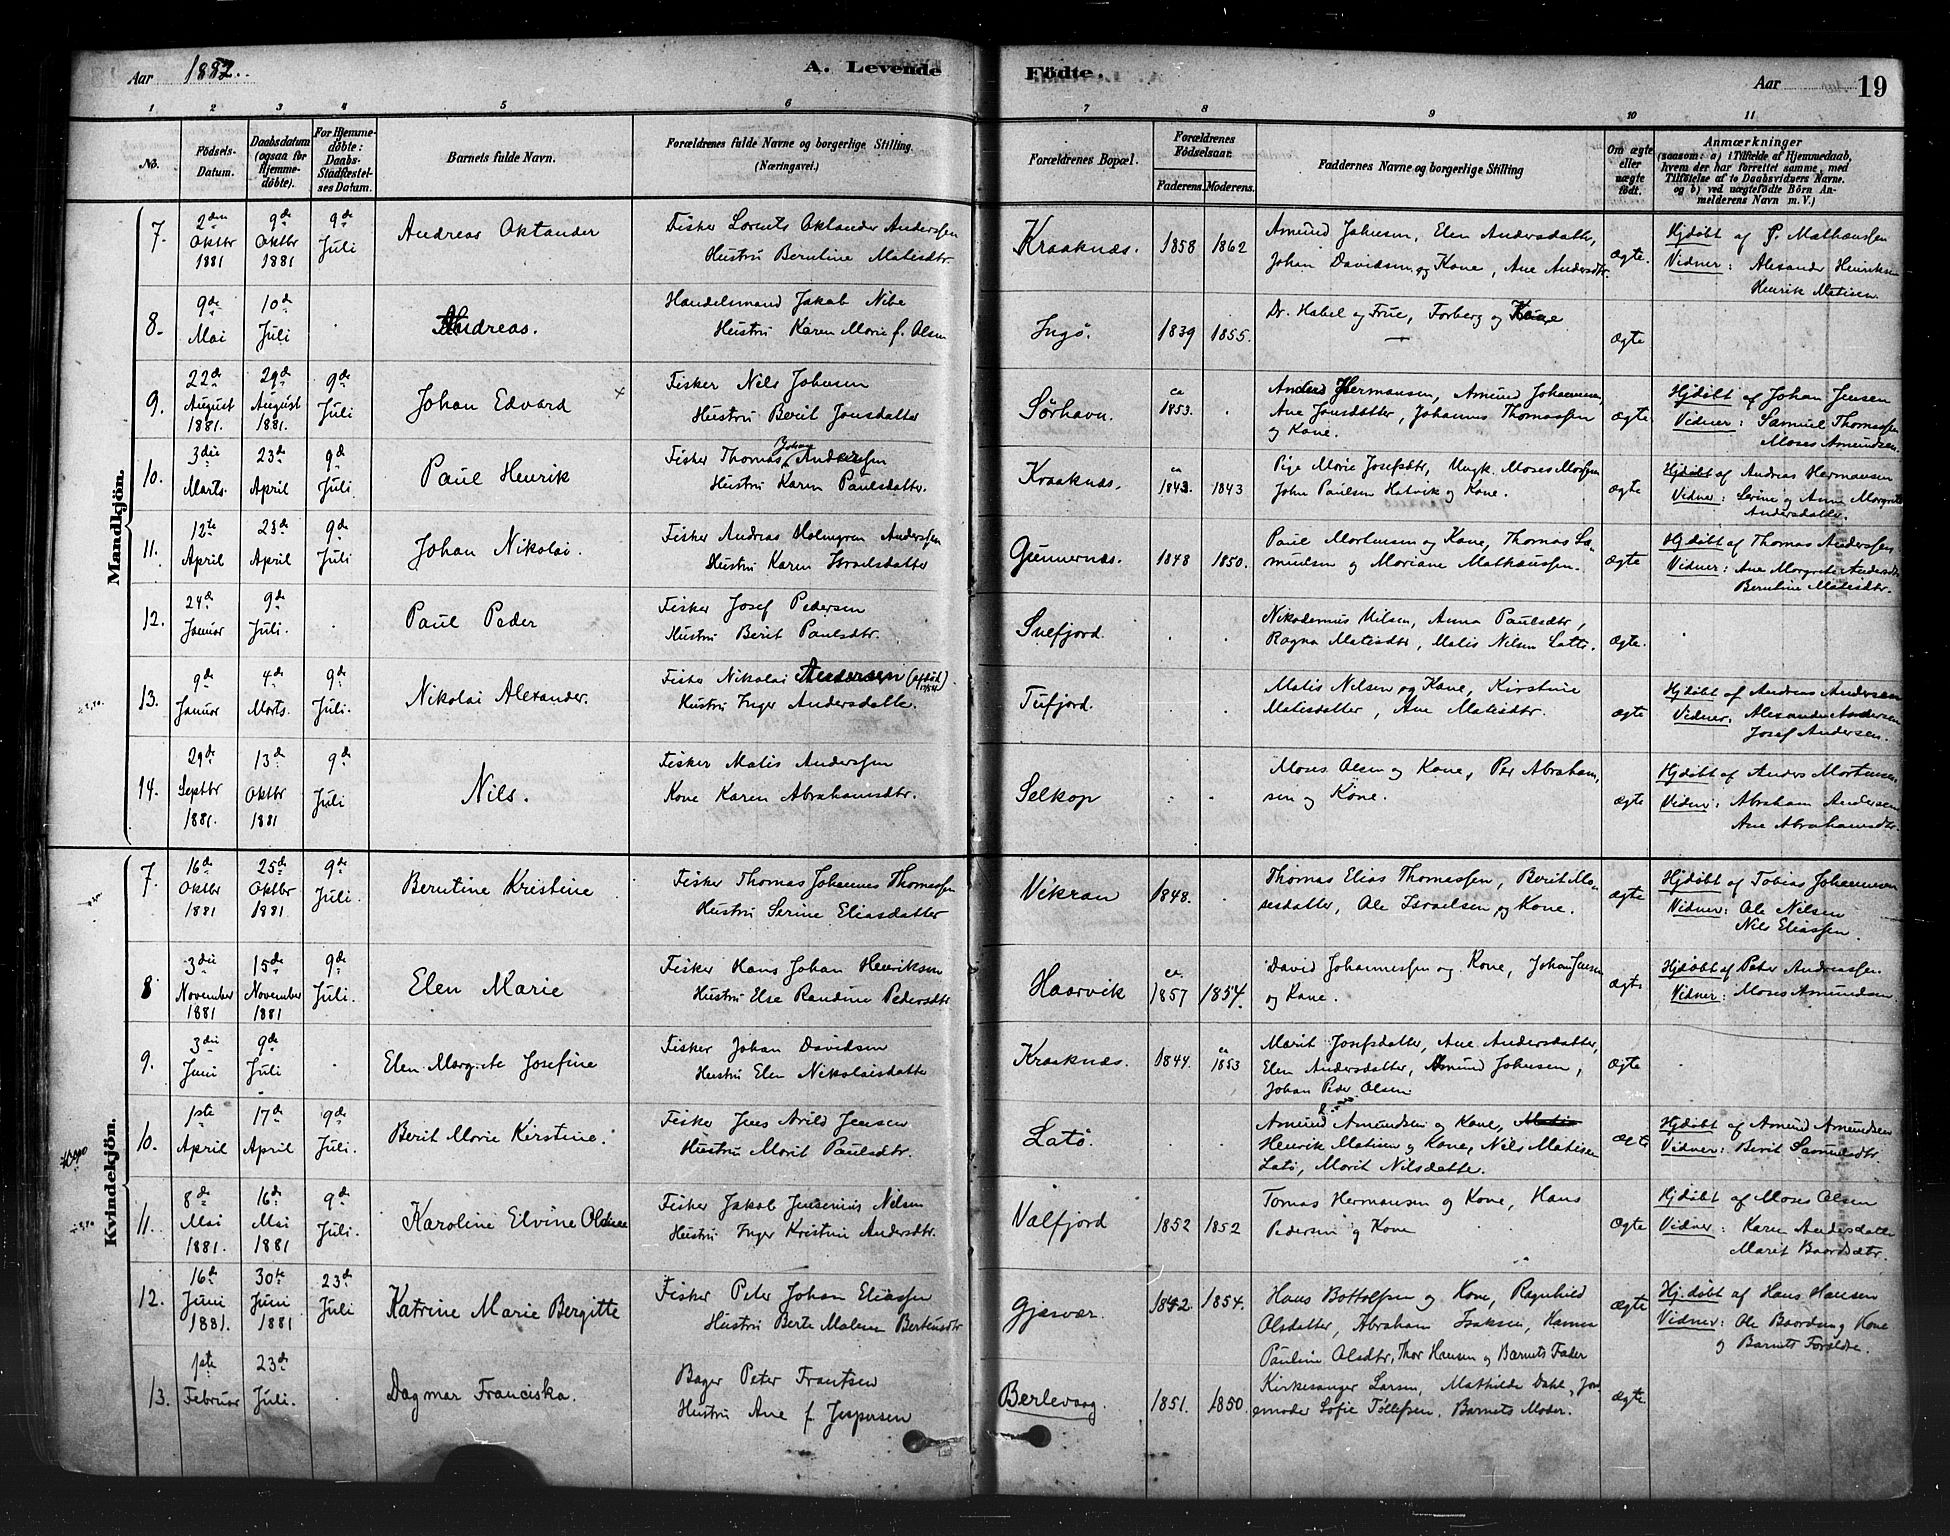 Aar 1882. A. Levende Fødte. Aar 19
1 2 3 4 5 6 7 8 9 10 11
No. Fødsels-Datum. Daabsdatum (ogsaa for Hjemmedøbte). For Hjemmedøbte: Daabs-Stadfæstelses Datum. Barnets fulde Navn. Forældrenes fulde Navne og borgerlige Stilling. (Næringsvei.) Forældrenes Bopæl. Forældrenes Fødselsaar. Faderens. Moderens. Faddernes Navne og borgerlige Stilling Om ægte eller uægte født. Anmærkninger (saasom: a) i Tilfælde af Hjemmedaab, hvem der har forrettet samme, med Tilføielse af to Daabsvidners Navne, og b) ved uægtefødte Børn Anmelderens Navn m. V.)
Mandkjön.
7. 2den Oktbr 1881 9de Oktbr 1881 9de Juli Andreas Oktander Fisker Lorents Oklander Anderssen
Hustru Berntine Matisdtr Kraaknæs. 1858 1862 Amund Johnsen, Elen Andersdatter,
Johan Davidsen og Kone, Ane Andersdtr. ægte. Hjdøbt af P. Mathæussen
Vidner: Alexander Henriksen
Henrik Matisen.
8. 9de Mai 10de Juli . Andreas. Handelsmand Jakob Nibe
Hustru Karen Marie f. Olsen Ingø. 1839 1855. Dr. Habel og Frue, Forberg og Kone ægte
9. 22de August 1881. 29de August 1881. 9de Juli Johan Edvard Fisker Nils Johnsen
Hustru Berit Jonsdatter Sørhavn. ca 1853. . Anders Hermansen, Amund Johannesen,
Ane Jonsdatter, Johannes Thomassen
og Kone. ægte Hjdøbt af Johan Jensen
Vidner: Samuel Thomassen
Moses Amundsen
10. 3die Marts. 23de April 9de Juli. Paul Henrik Fisker Thomas Johan Anderssen
Hustru Karen Paulsdatter. Kraaknæs. ca 1843. 1843 Pige Marie Josefsdtr, Ungk. Moses
John Paulsen Hatvik og Kone. ægte Hjdøbt af Andreas Hermansen
Vidner: Serine og Anne Margrete
Andersdatter.
11. 12te April 23de April 9de Juli Johan Nikolai. Fisker Andreas Holmgren Anderssen
Hustru Karen Israelsdatter Gunnernæs. 1848 1850. Paul Mortensen og Kone, Thomas Sa-
muelsen og Mariane Mathæussen. ægte Hjdøbt af Thomas Anderssen
Vidner: Ane Margrete Andersdtr
Berntine Matisdtr.
12. 24de Januar 9de Juli. . Paul Peder Fisker Josef Pedersen
Hustru Berit Paulsdtr. Snefjord. . . Nikodemus Nilsen, Anna Paulsdtr,
Ragna Matisdtr, Matis Nilsen Latø. ægte. .
13. 9de Januar 4de Marts. 9de Juli. Nikolai Alexander. Fisker Nikolai Andersen (afdød).
Hustru Inger Andersdatte. Tufjord. . . Matis Nilsen og Kone, Kirstine
Matisdatter, Ane Matisdtr. ægte Hjdøbt af Andreas Andersen
Vidner, Alexander Andersen
Josef Andersen.
14. 29de Septbr 1881. 13de Oktbr 1881 9de Juli Nils. Fisker Matis Anderssen
Kone Karen Abrahamsdtr. Selkop . . Moses Olsen og Kone, Per Abraham-
sen og Kone. ægte Hjdøbt af Anders Mortensen
Vidner: Abraham Andersen
Ane Abrahamsdtr.
Kvindekjön.
7. 16de Oktbr 1881 25de Oktbr 1881 9de Juli. Berntine Kristine Fisker Thomas Johannes Thomassen
Hustru Serine Eliasdatter Vikran 1848. . Thomas Elias Thomassen, Berit Mo-
sesdatter, Ole Israelsen og Kone. ægte Hjdøbt af Tobias Johannesen
Vidner: Ole Nilsen
Nils Eliassen.
8 3die November 1881 15de November 1881 9de Juli. Elen Marie Fisker Hans Johan Henriksen
Hustru Else Randine Pedersdtr Haarvik ca 1857 1854. David Johannessen og Kone, Johan Jensen
og Kone. ægte Hjdøbt af Peter Andreassen.
Vidner: Moses Amundsen
9. 3die Juni 9de Juli . Elen Margrete Josefine Fisker Johan Davidsen
Hustru Elen Nikolaisdatte Kraaknæs. 1844 ca 1853 Marit Josefsdatter, Ane Andersdatter,
Elen Andersdatter, Amund Johnsen,
Johan Peder Olsen. ægte .
10. 1ste April 17de April 9de Juli. Berit Marie Kirstine. Fisker Jens Arild Jensen
Hustru Marit Paulsdtr. Latø. . . Amund Amundsen og Kone,
Henrik Matisen og Kone, Nils Matisen
Latø, Marit Nilsdatte. ægte Hjdøbt af Amund Amundsen
Vidner: Berit Samuelsdtr
11. 8de Mai 1881. 16de Mai 1881 9de Juli. Karoline Elvine Fisker Jakob Jensenius Nilsen
Hustru Inger Kristine Andersdtr. Valfjord 1852 1852 Tomas Hermansen og Kone, Hans
Pedersen og Kone ægte Hjdøbt af Moses Olsen
Vidner: Karen Andersdatte
Marit Baardsdtr.
12. 16de Juni 1881. 30te Juni 1881 23de Juli Katrine Marie Bergitte Fisker Peter Johan Eliassen
Hustru Berte Malene Gjæsvær. 1842. 1854. Hans Bottolfsen og Kone, Ragnhild
Olsdatter, Abraham Isaksen, Hanna
Pauline Olsdtr, Thor Hansen og Barnets Fader ægte Hj.døbt af Hans Hansen
Vidner: Ole Baardsen og Kone
og Barnets Forældre.
13. 1ste Februar 23de Juli. . Dagmar Franciska. Bager Peter Frantsen
Hustru Ane f. Jespersen Berlevaag. 1851. 1850. Kirkesanger Larsen, Mathilde Dahl, Jord-
emoder Sofie Tollefsen. Barnets Moder. ægte.